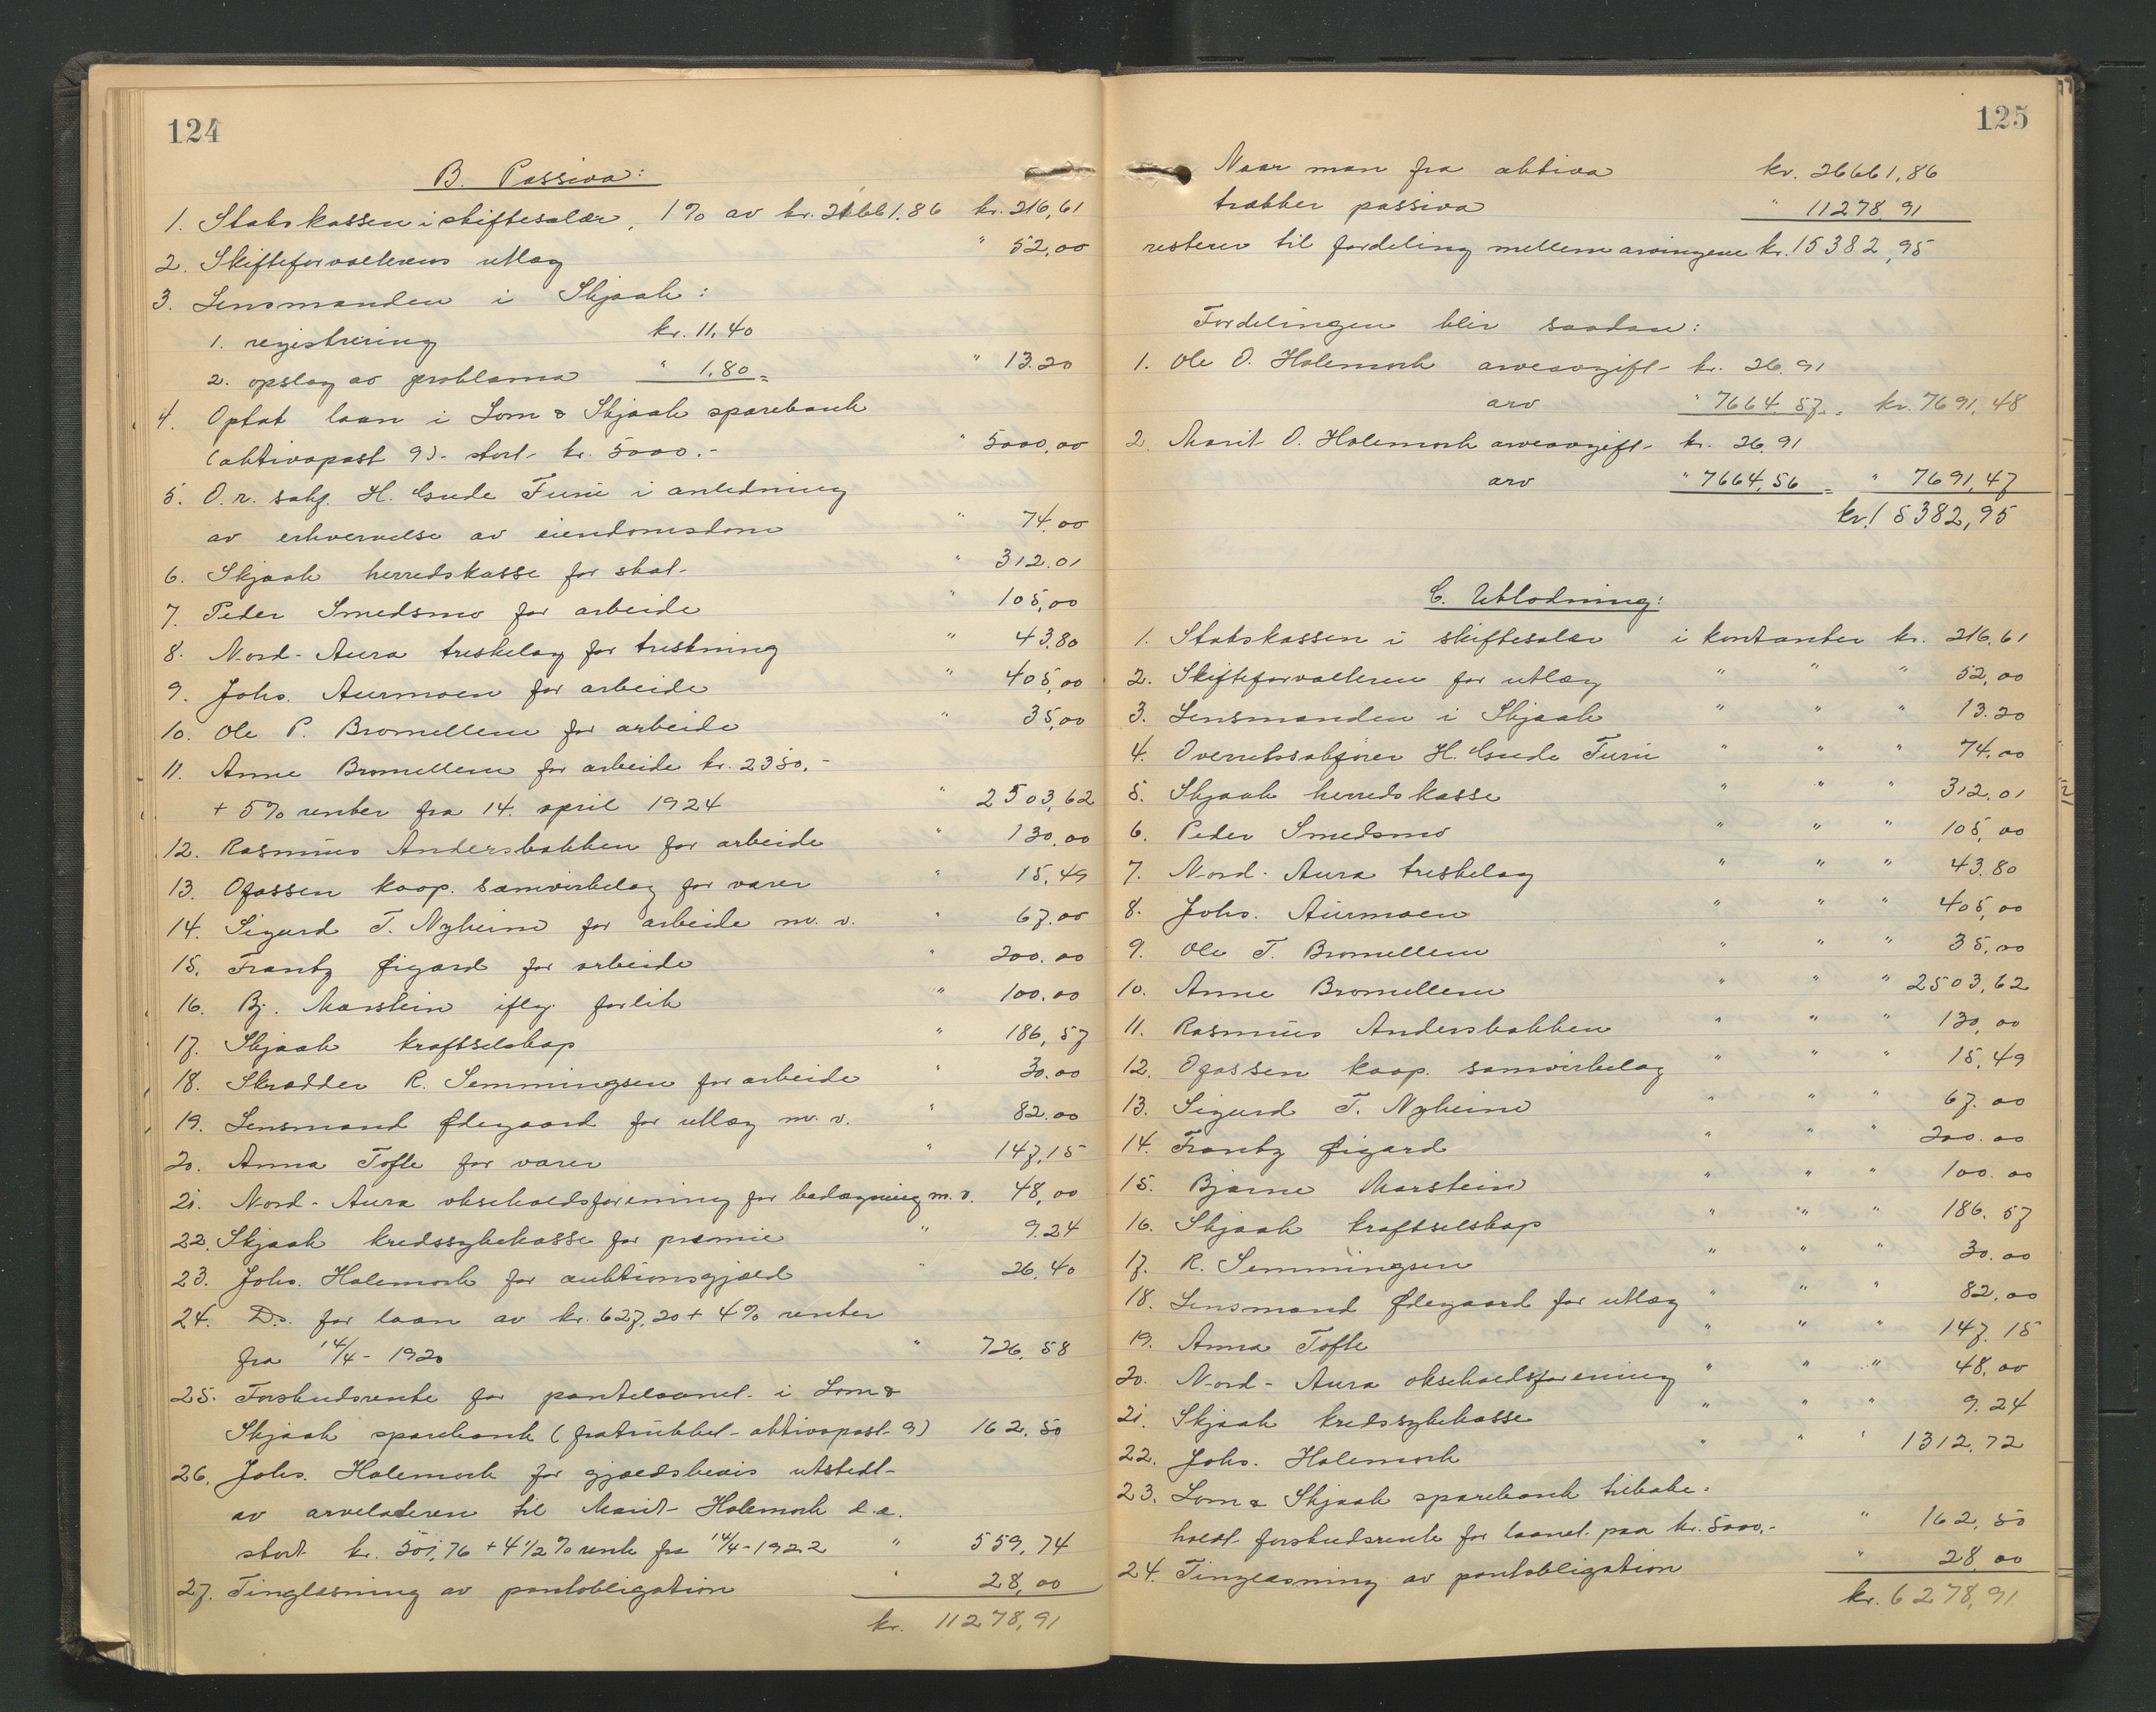 124
B. Passiva:
1. Statskassen i skiftesalær, 1% av kr. 21661.86 kr. 216,61
2. Skifteforvalterens utlæg " 52,00
3. Lensmanden i Skjaak:
1. registrering kr. 11,40
2. opslag av proklama " 1,80 = " 13.20
4. Optat laan i Lom & Skjaak sparebank
(aktivapost 9) - stort kr. 5000.- " 5000,00
5. O.r. sakf. H. Gude Furu i anledning
av erhvervelse av eiendomsdom " 74.00
6. Skjaak herredskasse for skat " 312.01
7. Peder Smedsmo for arbeide " 105,00
8. Nord-Aura treskelag for treskning " 43.80
9. Johs. Aurmoen for arbeide " 405,00
10. Ole P. Bromellem for arbeide " 35,00
11. Anne Bromellem for arbeide kr. 2350.-
+ 5% renter fra 14. april 1924 " 2503,62
12. Rasmus Andersbakken for arbeide " 130,00
13. Ofossen koop. samvirkelag for varer " 15,49
14. Sigurd T. Nyheim for arbeide m.v. " 67.00
15. Frantz Øigard for arbeide " 200.00
16. Bj. Marstein iflg. forlik " 100.00
17. Skjaak kraftselskap " 186,57
18. Skrædder R. Semmingsen for arbeide " 30.00
19. Lensmand Ødegaard for utlæg m.v. " 82.00
20. Anna Tofte for varer " 147,15
21. Nord-Aura okseholdsforening for bedægning m.v. 48,00
22. Skjaak kredssykekasse for præmie " 9.24
23. Johs. Holemork for auktionsgjæld " 26,40
24. Do. for laan av kr. 627,20 + 4% renter
fra 14/4 - 1920 " 726,58
25. Forskudsrente for pantelaanet i Lom &
Skjaak sparebank (fratrukket aktivapost 9) 162.50
26. Johs. Holemork for gjældsbevis utstedt
av arveladeren til Marit Holemork d.e.
stort kr. 501,76 + 4 1/2 % rente fra 14/4 - 1922 " 559,74
27. Tinglæsning av pantobligation " 28,00
kr. 11278,91
125
Naar man fra aktiva kr. 26661,86
trækker passiva " 11278,91
resterer til fordeling mellem arvingene kr. 15382,95
Fordelingen blir saadan:
1. Ole O. Holemork arveavgift kr. 26.91
arv " 7664.57 = kr. 7691,48
2. Marit O. Holemork arveavgift kr. 26.91
arv " 7664,56 = " 7691,47
kr. 15382,95
C. Utlodning:
1. Statskassen i skiftesalær i kontanter kr. 216,61
2. Skifteforvalteren for utlæg " " " 52,00
3. Lensmanden i Skjaak " " " 13.20
4. Overretssakfører H. Gude Furu " " " 74.00
5. Skjaak herredskasse " " " 312.01
6. Peder Smedsmo " " " 105,00
7. Nord-Aura treskelag " " " 43.80
8. Johs. Aurmoen " " " 405,00
9. Ole T. Bromellem " " " 35,00
10. Anne Bromellem " " " 2503,62
11. Rasmus Andersbakken " " " 130,00
12. Ofossen koop. samvirkelag " " " 15,49
13. Sigurd T. Nyheim " " " 67.00
14. Frantz Øigard " " " 200.00
15. Bjarne Marstein " " " 100.00
16. Skjaak kraftselskap " " " 186.57
17. R. Semmingsen " " " 30.00
18. Lensmand Ødegaard for utlæg " " " 82.00
19. Anna Tofte " " " 147.15
20. Nord-Aura okseholdsforening " " " 48,00
21. Skjaak kredssykekasse " " " 9.24
22. Johs. Holemork " " " 1312.72
23. Lom & Skjaak sparebank tilbake-
holdt forskudsrente for laanet paa kr. 5000.- " 162,50
24. Tinglæsning av pantobligation " 28,00
kr. 6278,91